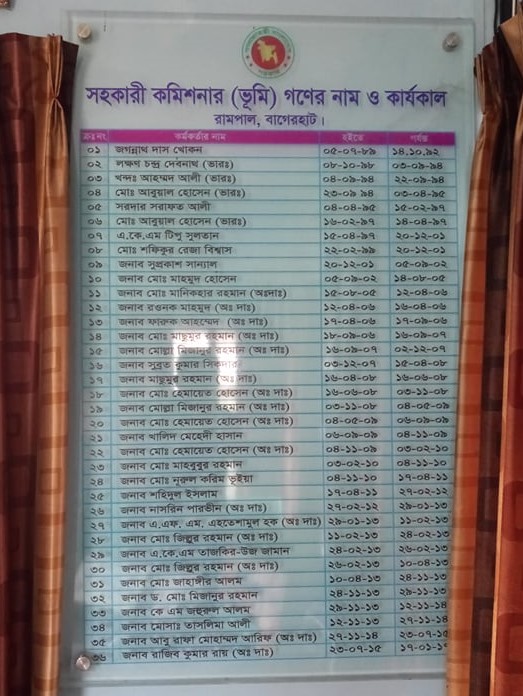 সহকারী কমিশনার (ভূমি) গণের নাম ও কার্যকাল
রামপাল, বাগেরহাট।
ক্রঃনং কর্মকর্তার নাম হইতে পর্যন্ত
০১ জগন্নাথ দাস খোকন ০৫-০৭-৮৯ ১৪.১০.৯২
০২ লক্ষণ চন্দ্র দেবনাথ (ভারঃ) ০৮-১০-৯৮ ০৩-০৯-৯৪
০৩ খন্দঃ আহম্মদ আলী (ভারঃ) ০৪-০৯-৯৪ ২২-০৯-৯৪
০৪ মোঃ আবুয়াল হোসেন (ভারঃ) ২৩-০৯ ৯৪ ০৩-০৪-৯৫
০৫ সরদার সরাফত আলী ০৪-০৪-৯৫ ১৫-০২-৯৭
০৬ মোঃ আবুয়াল হোসেন (ভারঃ) ১৬-০২-৯৭ ১৪-০৪-৯৭
০৭ এ.কে.এম টিপু সুলতান ১৫-০৪-৯৭ ২০-১২-০১
০৮ মোঃ শফিকুর রেজা বিশ্বাস ২২-০২-৯৯ ২০-১২-০১
০৯ জনাব সুপ্রকাশ সান্যাল ২০-১২-০১ ০৫-০৯-০২
১০ জনাব মোঃ মাহমুদ হোসেন ০৫-০৯-০২ ১৪-০৮-০৫
১১ জনাব মোঃ মানিকহার রহমান (অঃদাঃ) ১৫-০৮-০৫ ১২-০৪-০৬
১২ জনাব রওনক মাহমুদ (অঃ দাঃ) ১২-০৪-০৬ ১৬-০৪-০৬
১৩ জনাব ফারুক আহম্মেদ (অঃ দাঃ) ১৭-০৪-০৬ ১৭-০৯-০৬
১৪ জনাব মোঃ মাছুমুর রহমান (অঃ দাঃ) ১৮-০৯-০৬ ১৬-০৯-০৭
১৫ জনাব মোল্লা মিজানুর রহমান (অঃ দাঃ) ১৬-০৯-০৭ ০২-১২-০৭
১৬ জনাব সুব্রত কুমার সিকদার ০৩-১২-০৭ ১৫-০৪-০৮
১৭ জনাব মাছুমুর রহমান (অঃ দাঃ) ১৬-০৪-০৮ ১৬-০৬-০৮
১৮ জনাব মোঃ হেমায়েত হোসেন (অঃ দাঃ) ১৬-০৬-০৮ ০৩-১১-০৮
১৯ জনাব মোল্লা মিজানুর রহমান (অঃ দাঃ) ০৩-১১-০৮ ০৪-০৫-০৯
২০ জনাব মোঃ হেমায়েত হোসেন (অঃ দাঃ) ০৪-০৫-০৯ ০৬-০৯-০৯
২১ জনাব খালিদ মেহেদী হাসান ০৬-০৯-০৯ ০৪-১১-০৯
২২ জনাব মোঃ হেমায়েত হোসেন (অঃ দাঃ) ০৪-১১-০৯ ০৩-০২-১০
২৩ জনাব মোঃ মাহবুবুর রহমান ০৩-০২-১০ ০৪-১১-১০
২৪ জনাব মোঃ নূরুল করিম ভূইয়া ০৪-১১-১০ ১৭-০৪-১১
২৫ জনাব শহিদুল ইসলাম ১৭-০৪-১১ ২৭-০২-১২
২৬ জনাব নাসরিন পারভীন (অঃ দাঃ) ২৭-০২-১২ ২৯-০১-১৩
২৭ জনাব এ.এফ. এম. এহতেশামুল হক (অঃ দাঃ) ২৯-০১-১৩ ১১-০২-১৩
২৮ জনাব মোঃ জিল্লুর রহমান (অঃ দাঃ) ১১-০২-১৩ ২৪-০২-১৩
২৯ জনাব এ.কে.এম তাজকির-উজ জামান ২৪-০২-১৩ ২৬-০২-১৩
৩০ জনাব মোঃ জিল্লুর রহমান (অঃ দাঃ) ২৬-০২-১৩ ১০-০৪-১৩
৩১ জনাব মোঃ জাহাঙ্গীর আলম ১০-০৪-১৩ ২৪-১১-১৩
৩২ জনাব ড. মোঃ মিজানুর রহমান ২৪-১১-১৩ ২৯-১১-১৩
৩৩ জনাব কে এম জহুরুল আলম ২৯-১১-১৩ ১২-১১-১৪
৩৪ জনাব মোসাঃ তাসলিমা আলী ১২-১১-১৪ ২৭-১১-১৪
৩৫ জনাব আবু রাফা মোহাম্মদ আরিফ (অঃ দাঃ) ২৭-১১-১৪ ২৩-০৭-১৫
৩৬ জনাব রাজিব কুমার রায় (অঃ দাঃ) ২৩-০৭-১৫